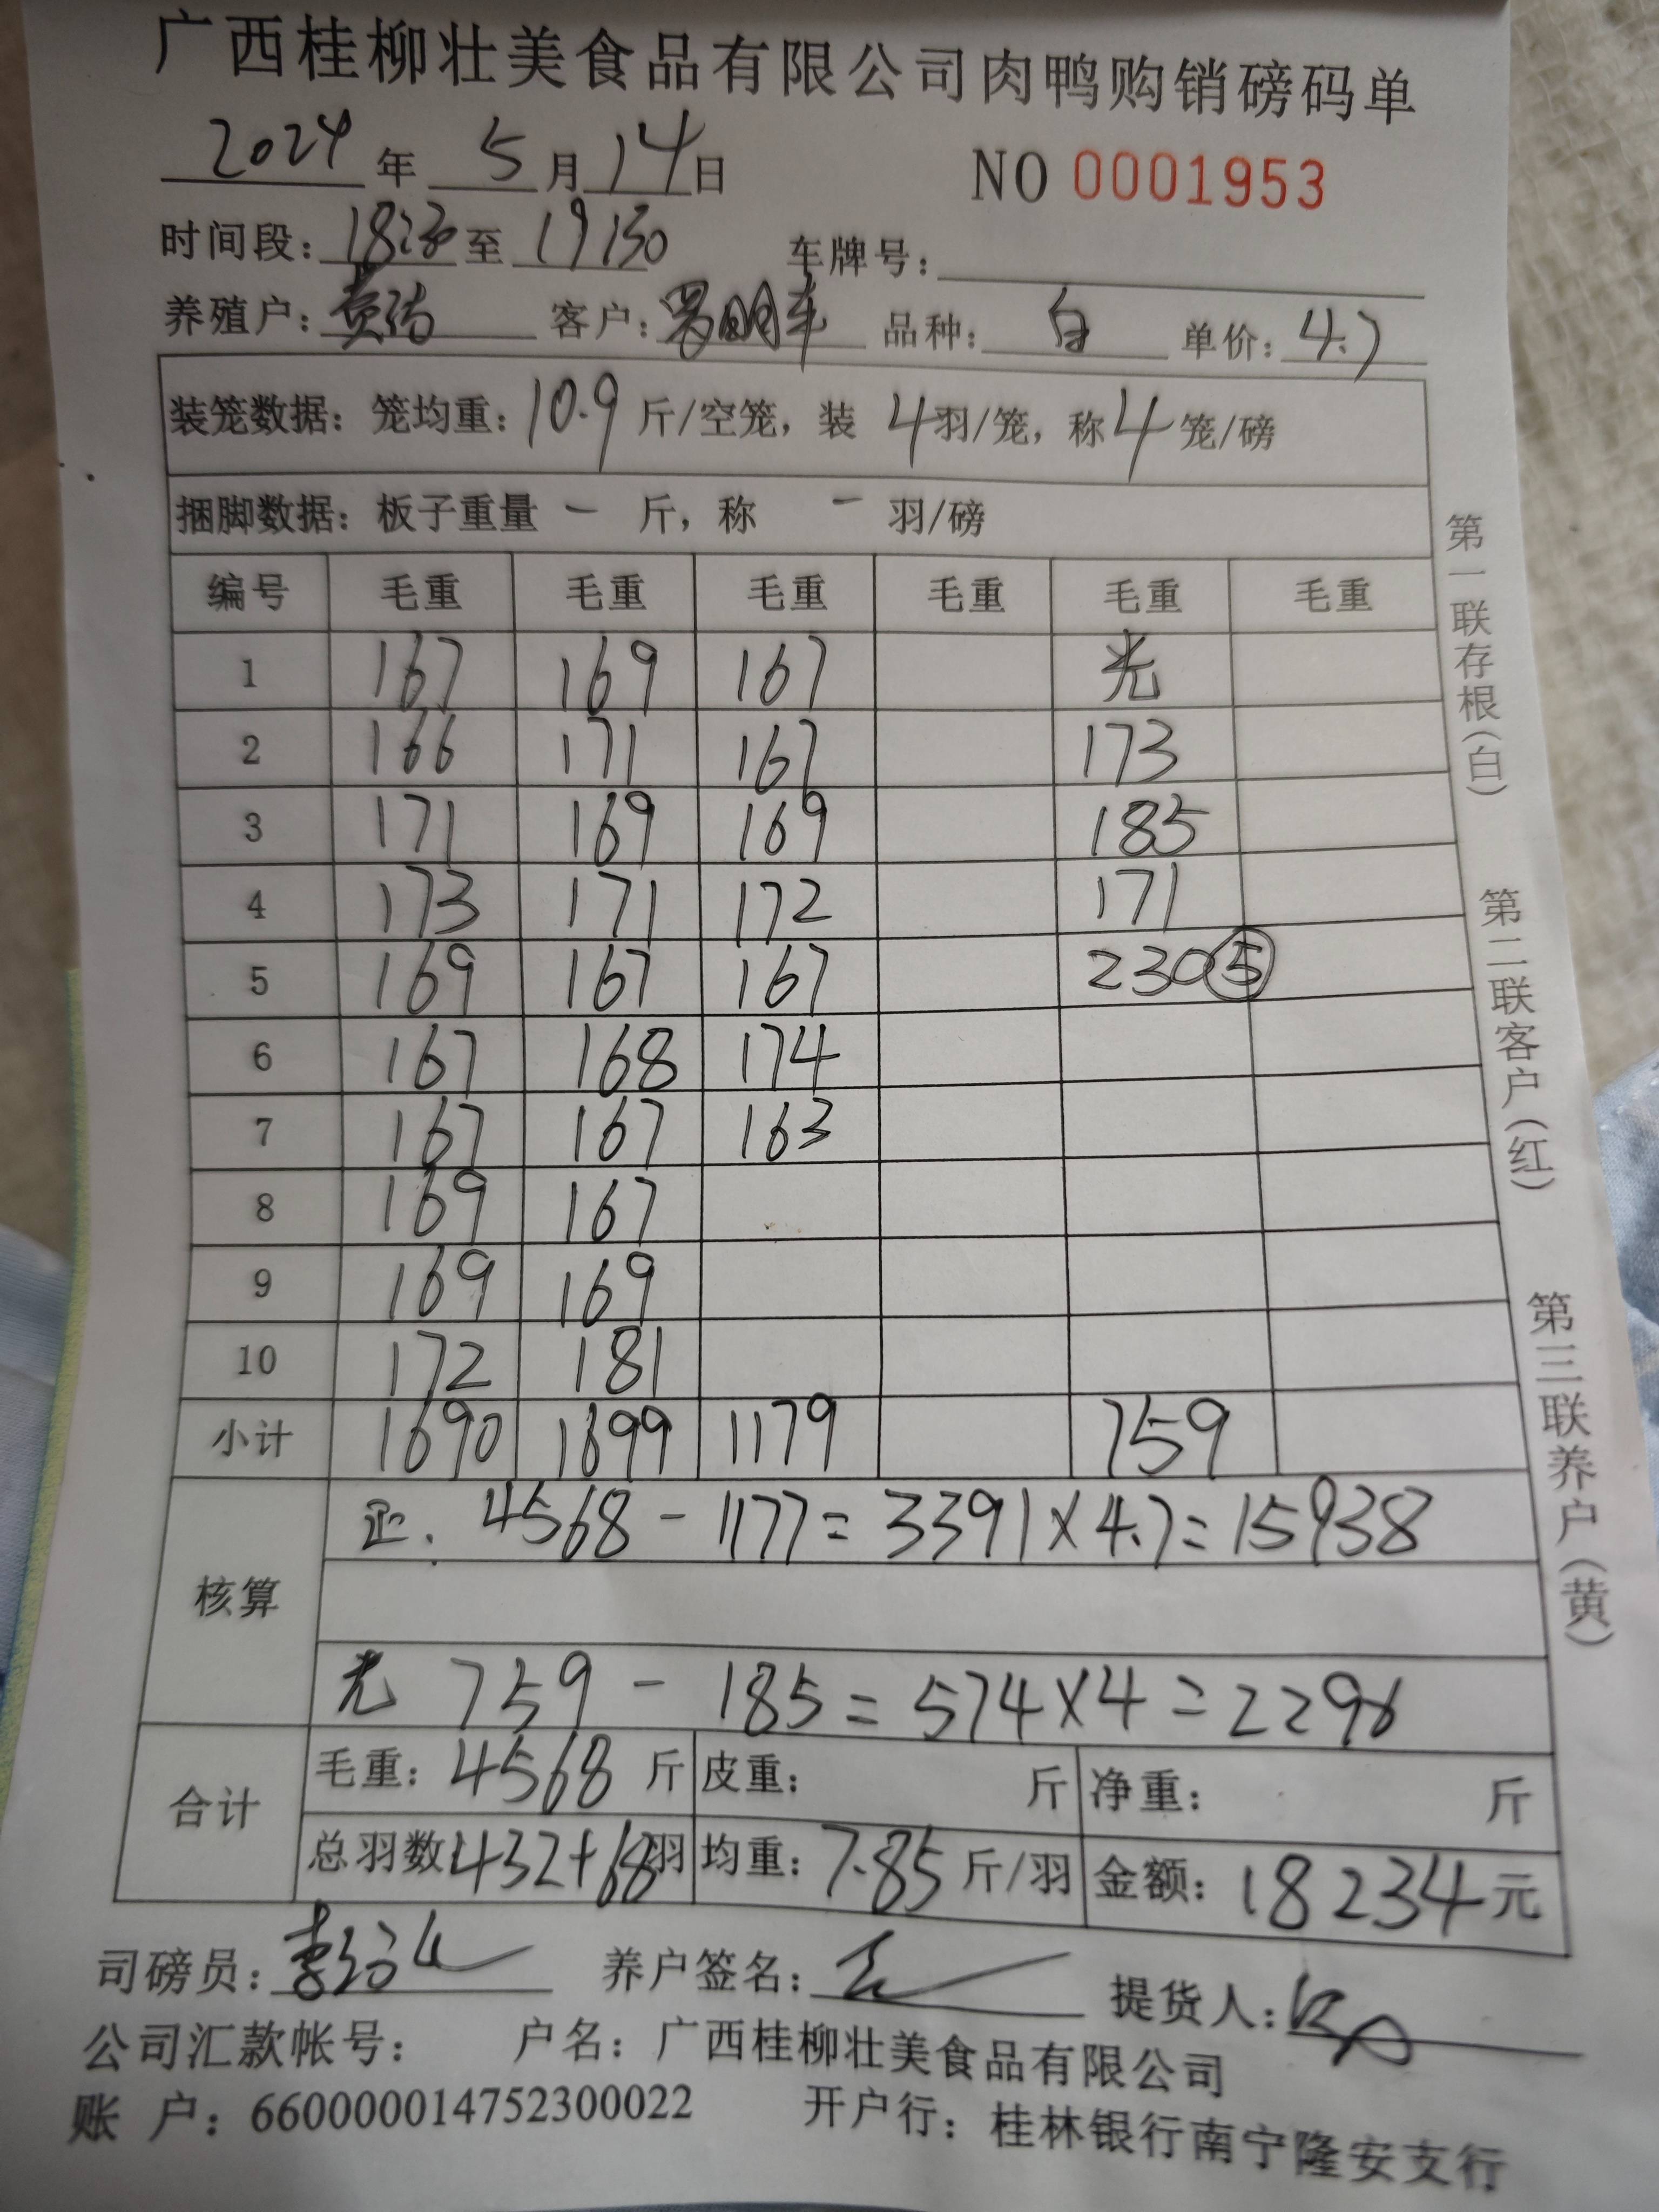 广西桂柳壮美食品有限公司肉鸭购销磅码单
2024年 5月14日 NO 0001953
时间段：18:30至 19:30 车牌号：
养殖户：黄 客户：罗明 品种：白 单价：4.7
装笼数据：笼均重：10.9斤/空笼，装 4羽/笼，称4笼/磅
捆脚数据：板子重量 一 斤，称 一 羽/磅
编号 毛重 毛重 毛重 毛重 毛重 毛重
1 167 169 167 光
2 166 171 167 173
3 171 169 169 185
4 173 171 172 171
5 169 167 167 230⑤
6 167 168 174
7 167 167 163
8 169 167
9 169 169
10 172 181
小计 1690 1699 1179 759
核算 正. 4568-1177=3391×4.7=15938
光 759-185=574×4=2296
合计 毛重：4568斤 皮重： 斤 净重： 斤
总羽数432+68羽 均重：7.85斤/羽 金额：18234元
司磅员：李 养户签名： 提货人：
公司汇款帐号： 户名：广西桂柳壮美食品有限公司
账 户：660000014752300022 开户行：桂林银行南宁隆安支行
第一联存根（白） 第二联客户（红） 第三联养户（黄）